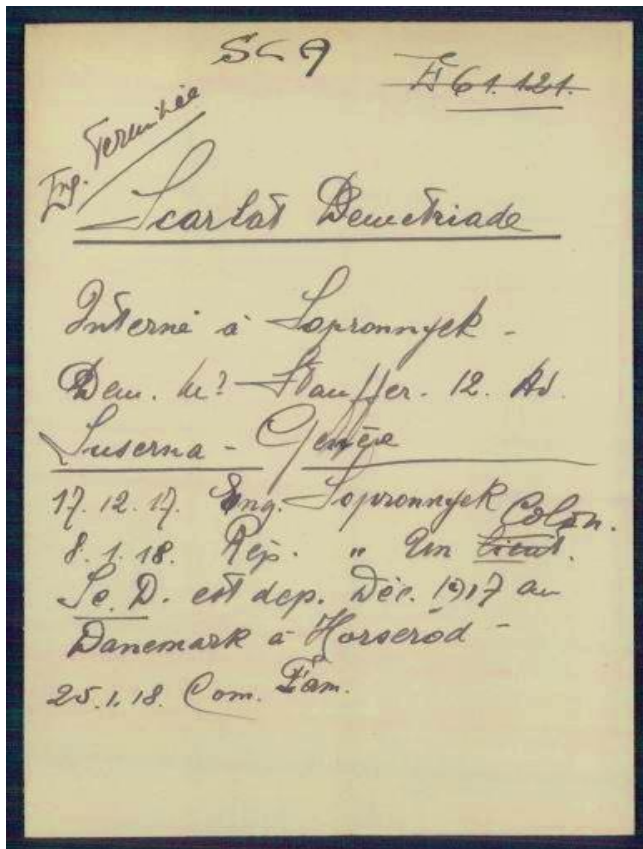 SCA
F 61.121.
Enq. Terminée
Scarlat Demetriade
Interné à Sopronnyek -
Dem. Mr Stauffer. 12. Av.
Luserna - Genève
17. 12. 17. Enq. Sopronnyek
8. 1. 18. Rép. " Un lieut. Colon.
Sc. D. est dep. Déc. 1917 au
Danemark à Horseröd -
25.1.18. Com. Fam.